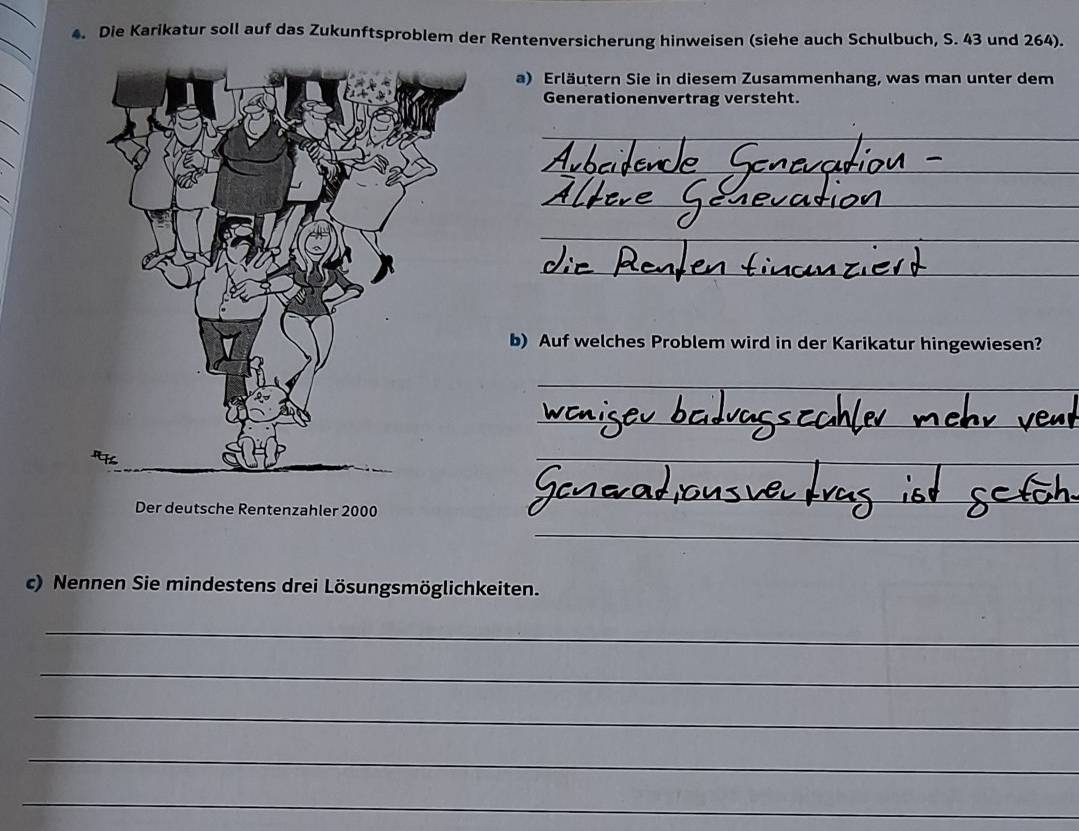 4. Die Karikatur soll auf das Zukunftsproblem der Rentenversicherung hinweisen (siehe auch Schulbuch, S. 43 und 264).
a) Erläutern Sie in diesem Zusammenhang, was man unter dem
Generationenvertrag versteht.
Arbeitende Generation -
Ältere Generation
die Renten finanziert
b) Auf welches Problem wird in der Karikatur hingewiesen?
weniger beitragszahler mehr rent
Generationsvertrag ist gefäh
Der deutsche Rentenzahler 2000
c) Nennen Sie mindestens drei Lösungsmöglichkeiten.